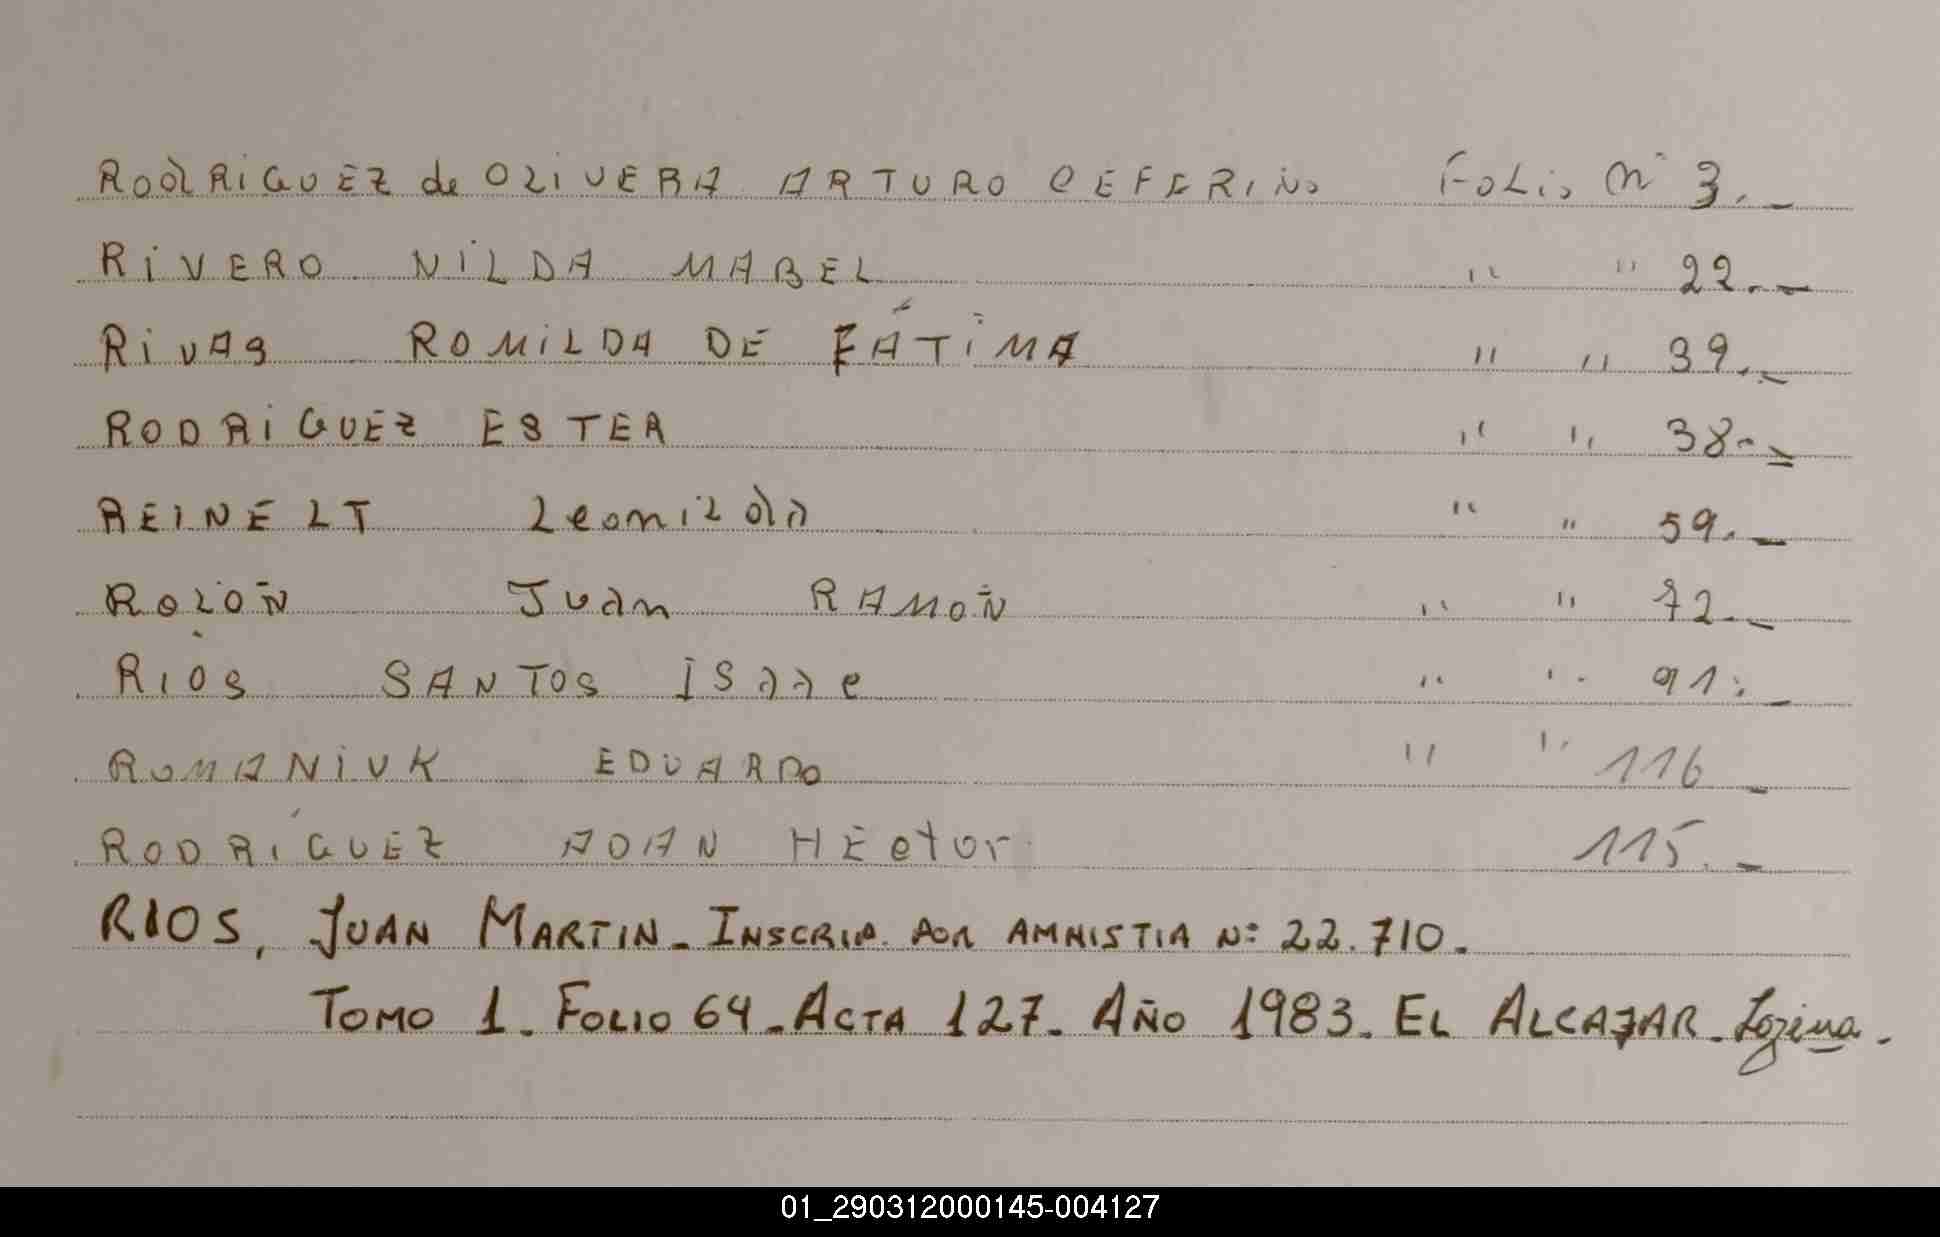 RODRIGUEZ de OLIVERA ARTURO CEFERINO Folio Nº 3.-
RiVERO NILDA MABEL " " 22.-
RiVAS ROMILDA DE FÁTIMA " " 39.-
RODRIGUEZ ESTER " " 38.-
REINELT Leonilda " " 59.-
ROLOÑ Juan RAMOÑ " " 72.-
RIOS SANTOS ISaac " " 91.-
ROMANIUK EDUARDO " " 116 -
RODRÍGUEZ ADAN HEctor 115.-
RIOS, JUAN MARTIN - INSCRIP. POR AMNISTIA Nº 22.710.-
TOMO 1. FOLIO 64 - ACTA 127. AÑO 1983. EL ALCAZAR -
01_290312000145-004127